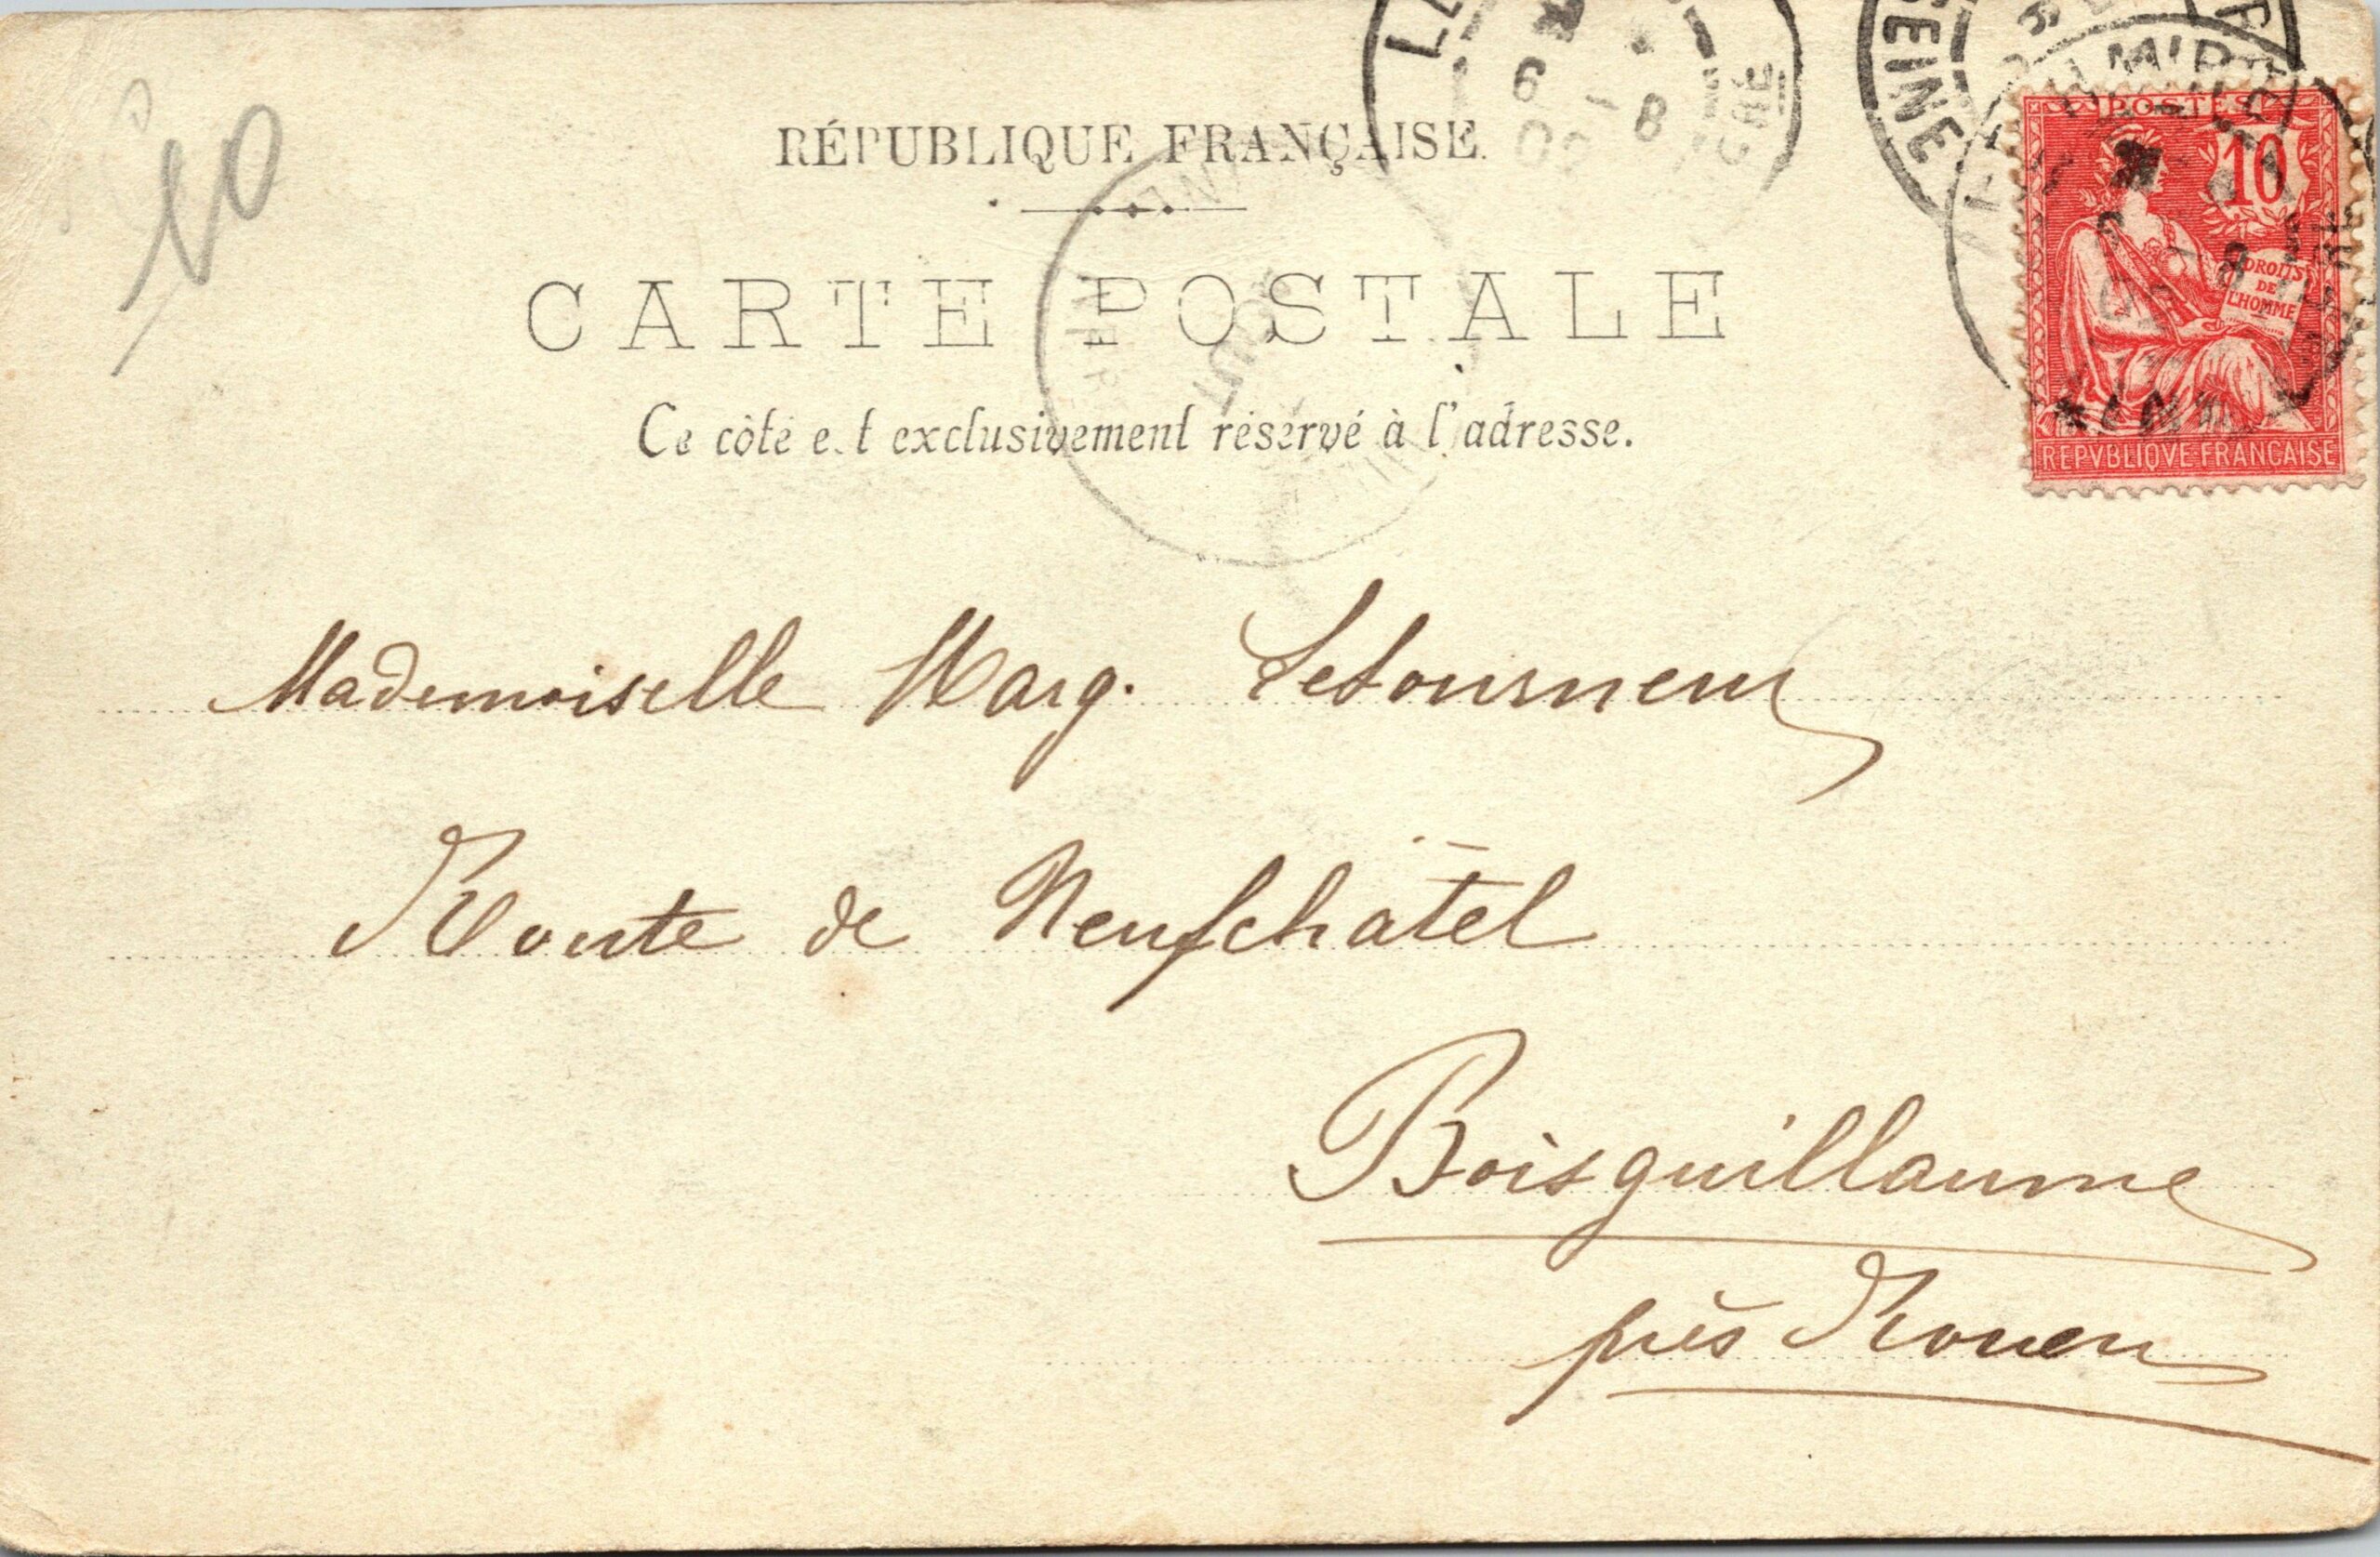 10
RÉPUBLIQUE FRANÇAISE.
CARTE POSTALE
Ce côté est exclusivement réservé à l'adresse.
POSTES
10
DROITS
DE
L'HOMME
REPVBLIQVE FRANCAISE
SEINE
6 - 8
Mademoiselle Marg. Letourneur
Route de Neufchâtel
Boisguillaume
près Rouen